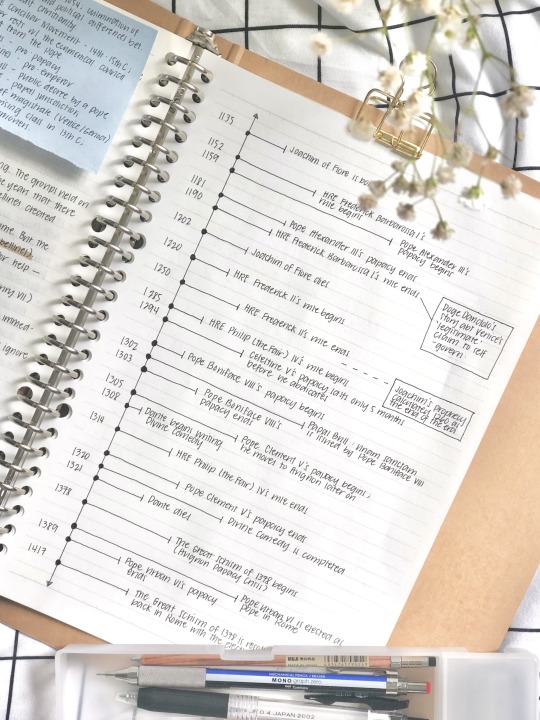 1054, culmination of
and political differences bet.
Christianity
Conciliar movement : 14th-15th C,
w/ the ecumenical council
from the Pope
pro papacy
pro emperor
public desire by a Pope
papal jurisdiction
of magistrate (Venice/Genoa)
ruling class in 13th C,
commoners.
ng. The groups held on
he years that there
bellines created
me. But the
bellines)
or help —
nry VII)
immed-
ignore
1135
Joachim of Fiore is bo
1152
1159
HRE Frederick Barbarossa I's
rule begins
Pope Alexander III's
papacy begins
1181
1190
Pope Alexander III's papacy ends
HRE Frederick Barbarossa I's rule ends
1202
Joachim of Fiore dies
1220
HRE Frederick II's rule begins
1250
HRE Frederick II's rule ends
Doge Dandolo's
story abt Venice's
"legitimate"
claim to self
govern.
1285
1294
HRE Philip (the Fair) IV's rule begins
Celestine V's papacy lasts only 5 months
before he abdicates
Joachim's prophecy
calculated 1260 as
the end of the era
1302
1303
Pope Boniface VIII's papacy begins
Papal Bull : Unam Sanctam
is issued by Pope Boniface VIII
Pope Boniface VIII's
papacy ends
1305
1308
Pope Clement V's papacy begins;
He moves to Avignon later on
Dante begins writing
Divine Comedy
1314
HRE Philip (the Fair) IV's rule ends
Pope Clement V's papacy ends
1320
1321
Divine Comedy is completed
Dante dies
1378
The Great Schism of 1378 begins
(Avignon Papacy (1305))
Pope Urban VI is elected as
pope in Rome
1389
Pope Urban VI's papacy
ends
1417
The Great Schism of 1378 is
back in Rome with the
MUJI
MECHANICAL PENCIL / ERASER
MONO graph zero
JAPAN 2002